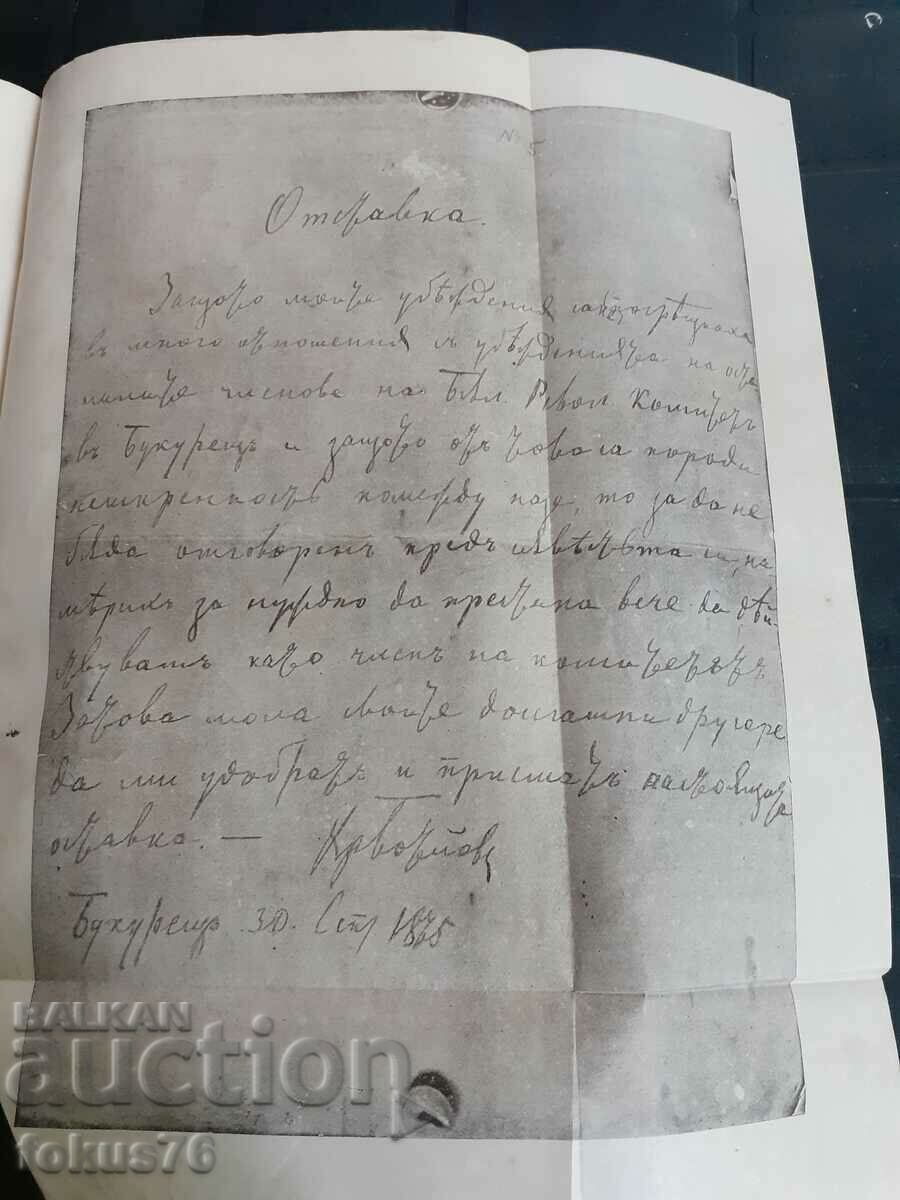 № 5
Отставка.
Защото моите убѣждения
въ много отношения съ убѣжденията на оста
налите членове на Бъл. Револ. Комитетъ
въ Букурещъ и защото отъ това са породи
неискренность помежду нас, то за да не
бѫда отговоренъ предъ съвѣстьта си, на-
мѣрихъ за нуждно да престана вече да дѣй-
ствувамъ като членъ на комитетътъ
Затова моля своите досгашни другаре
да ми удобратъ и приематъ настоящата
оставка. —
Хр Ботйовъ
Букурещъ 30. Септ 1875
BALKAN
auction
fokus76